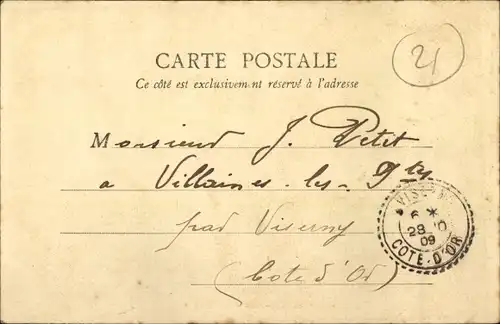 CARTE POSTALE
21
Ce côté est exclusivement réservé à l'adresse
Monsieur J. Petit
a Villaines-les-Ptes
par Viserny
(Cote d'Or)
VISERNY
6 *
28 10
09
COTE-D'OR